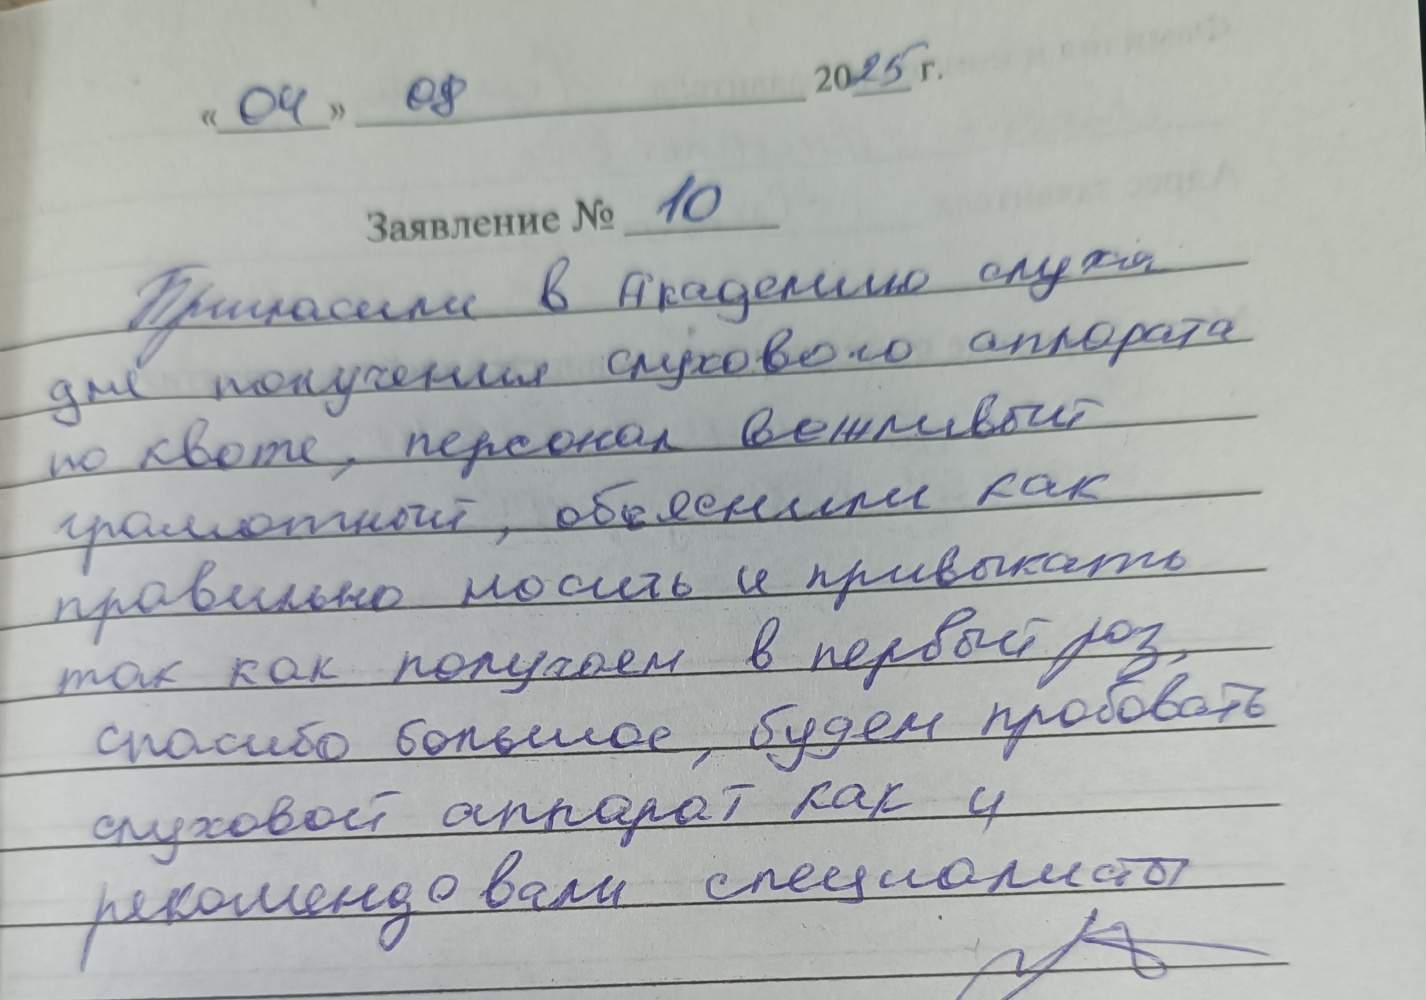 « 04 » 08 2025 г.
Заявление № 10
Пригласили в Академию слуха
для получения слухового аппарата
по квоте, персонал вежливый
грамотный, объяснили как
правильно носить и привыкать
так как получаем в первый раз,
спасибо большое, будем пробовать
слуховой аппарат как и
рекомендовали специалисты